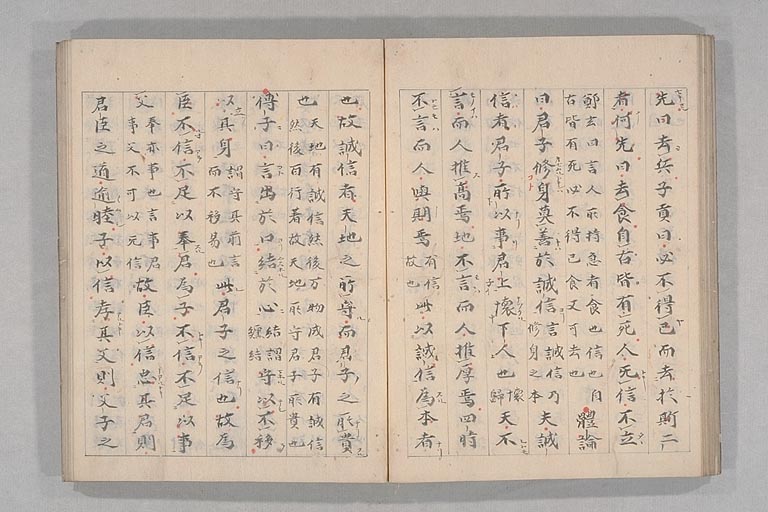 先曰去兵子貢曰必不得已而去於斯二
者何先曰去食自古皆有死人死信不立
鄭玄曰言人所持急者食也信也自
古皆有死必不得已食又可去也
體論
曰君子修身莫善於誠信
言誠信乃
修身之本
夫誠
信者君子所以事君上懷下人也
懷
歸
天不
言而人推高焉地不言而人推厚焉四時
不言而人與期焉
有信
故也
此以誠信為本者
也故誠信者天地之所守而君子之所貴
也
天地有誠信然後万物成君子有誠信
然後百行著故天地所守君子所貴也
傅子曰言出於口結於心
結謂
纏結
守以不移
以立其身
謂守其前言
而不移易也
此君子之信也故為
臣不信不足以奉君為子不信不足以事
父
奉亦事也言事君
事父不可以无信
故臣以信忠其君則
君臣之道逾睦子以信孝其父則父子之